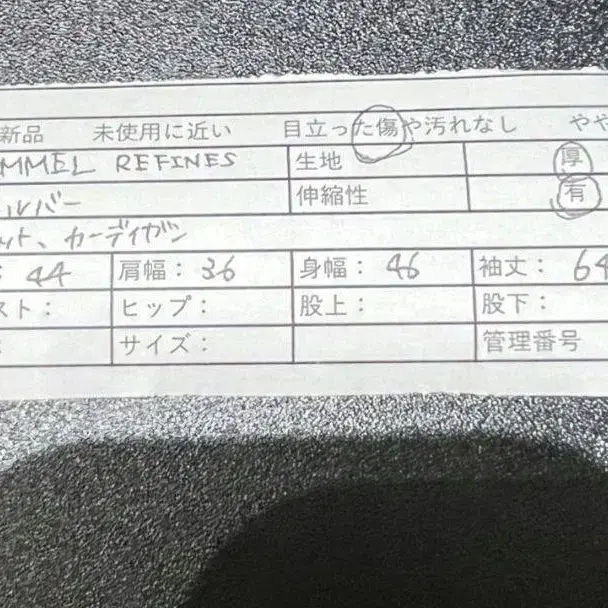 新品 未使用に近い 目立った傷や汚れなし やや
MMEL REFINES 生地 厚
ルバー 伸縮性 有
ット、カーディガン
: 44 肩幅: 36 身幅: 46 袖丈: 64
スト: ヒップ: 股上: 股下:
: サイズ: 管理番号